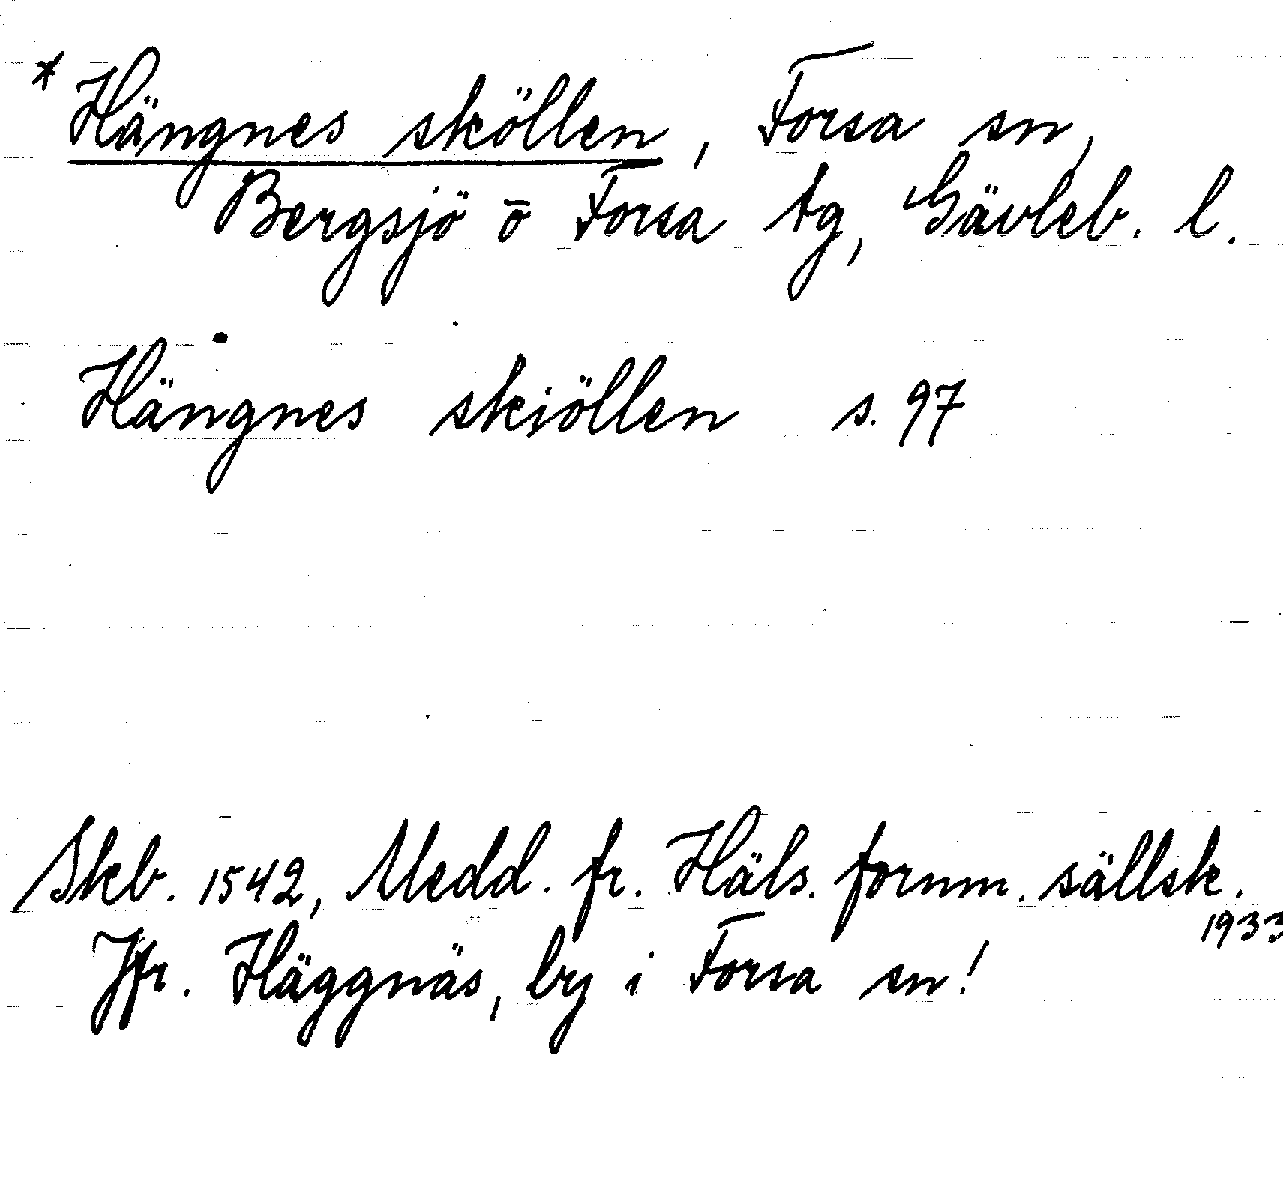 * Hängnes sköllen, Forsa sn,
Bergsjö o Forsa tg, Gävleb. l.
Hängnes skiöllen s. 97
Skb. 1542, Medd. fr. Häls. fornm. sällsk.
1933
Jfr. Häggnäs, by i Forsa sn!